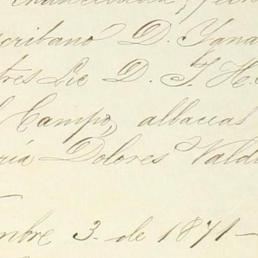 scribano D. Igna
tres Lic D. J. H.
l Campo, albaceas
ría Dolores Vald
mbre 3. de 1871 -